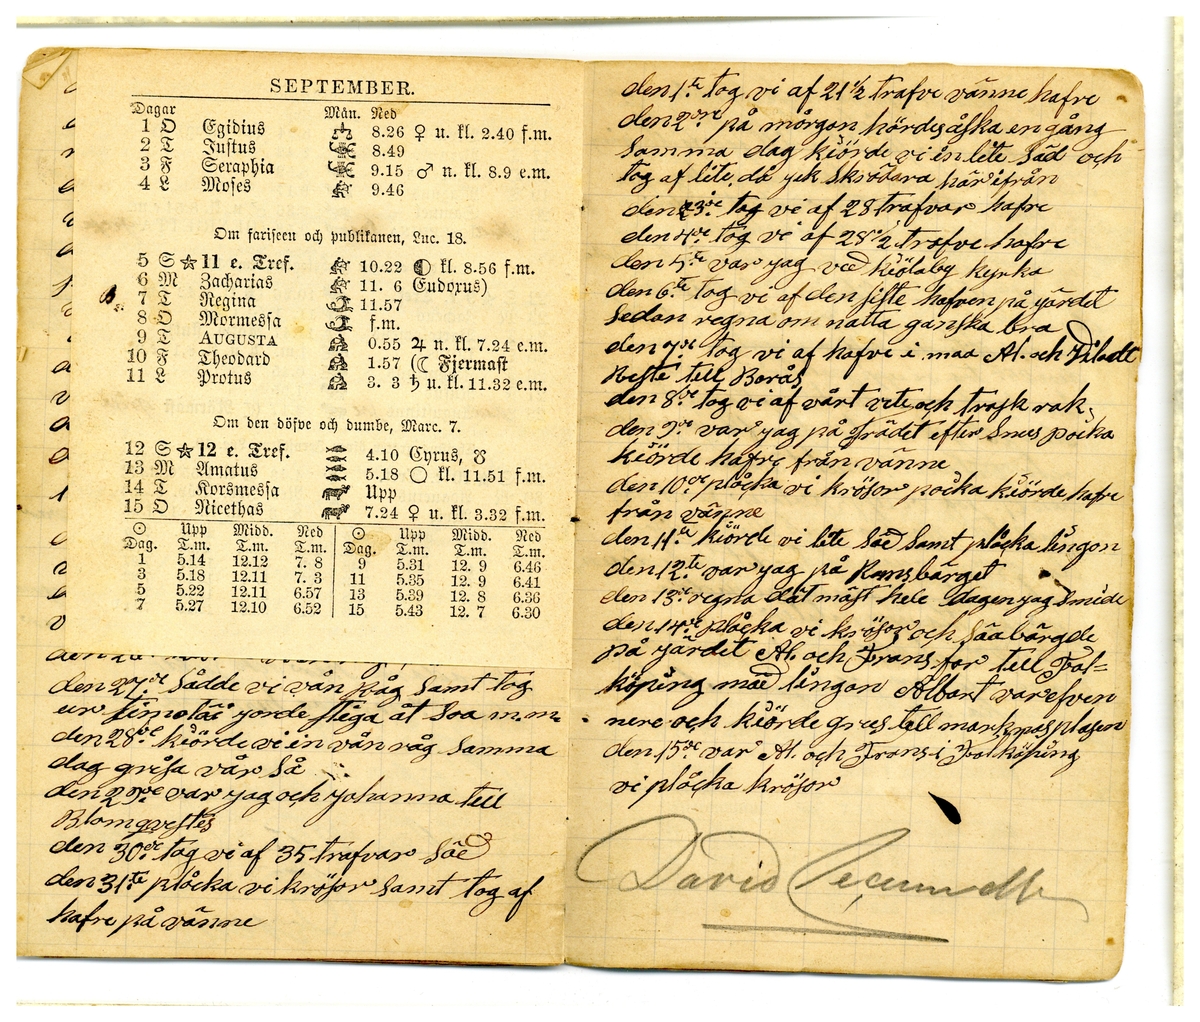 SEPTEMBER.
Dagar Mån. Ned
1 O Egidius 8.26 ♀ u. kl. 2.40 f.m.
2 T Justus 8.49
3 F Seraphia 9.15 ♂ n. kl. 8.9 e.m.
4 L Moses 9.46
Om fariseen och publikanen, Luc. 18.
5 S 11 e. Tref. 10.22 kl. 8.56 f.m.
6 M Zacharias 11. 6 Eudoxus)
7 T Regina 11.57
8 O Mormessa f.m.
9 T AUGUSTA 0.55 ♃ n. kl. 7.24 e.m.
10 F Theodard 1.57 (☾ Fjermast
11 L Protus 3. 3 ♄ u. kl. 11.32 e.m.
Om den döfve och dumbe, Marc. 7.
12 S 12 e. Tref. 4.10 Cyrus, ☋
13 M Amatus 5.18 ○ kl. 11.51 f.m.
14 T Korsmessa Upp
15 O Nicethas 7.24 ♀ u. kl. 3.32 f.m.
☉ Upp Midd. Ned ☉ Upp Midd. Ned
Dag. T.m. T.m. T.m. Dag. T.m. T.m. T.m.
1 5.14 12.12 7. 8 9 5.31 12. 9 6.46
3 5.18 12.11 7. 3 11 5.35 12. 9 6.41
5 5.22 12.11 6.57 13 5.39 12. 8 6.36
7 5.27 12.10 6.52 15 5.43 12. 7 6.30
den 27de sådde vi vån råg samt tog
ur timotäi jorde stiga åt Soa m.m
den 28de kiörde vi in vån råg samma
dag gräfa vår Så
den 29de var jag och Johanna till
Blomqvestes
den 30de tog vi af 35 trafvar säd
den 31te plåcka vi krösor samt tog af
hafre på vänne
den 1te tog vi af 21 1/2 trafve vänne hafre
den 2dre på mårgon hördes åska en gång
samma dag kiörde vi in lite säd och
tog af lite, då jek skrödara härifrån
den 3de tog vi af 28 trafvar hafre
den 4de tog vi af 28 1/2 trafve hafre
den 5te var jag ved kiölaby kyrka
den 6te tog vi af den siste hafven på järdet
sedan regna om natta ganska bra
den 7de tog vi af hafve i maa Al. och
Reste till Borås
den 8de tog vi af vårt vete och trask rak
den 9de var jag på Trädet efter Snus pocka
kiörde hafre från vänne
den 10de plåcka vi krösor pocka kiörde hafre
från vänne
den 11te kiörde vi lite säd samt plåcka lingon
den 12te var jag på Ramsbärget
den 13de regna dät mäst hele dagen jag Smide
den 14de plåcka vi krösor och Sädbärgde
på järdet Al. och Frans for till Fal=
köping mäd lingon Albart var efven
nere och kiörde grus till marknas plasen
den 15de var Al. och Frans i Falköping
vi plåcka krösor
David